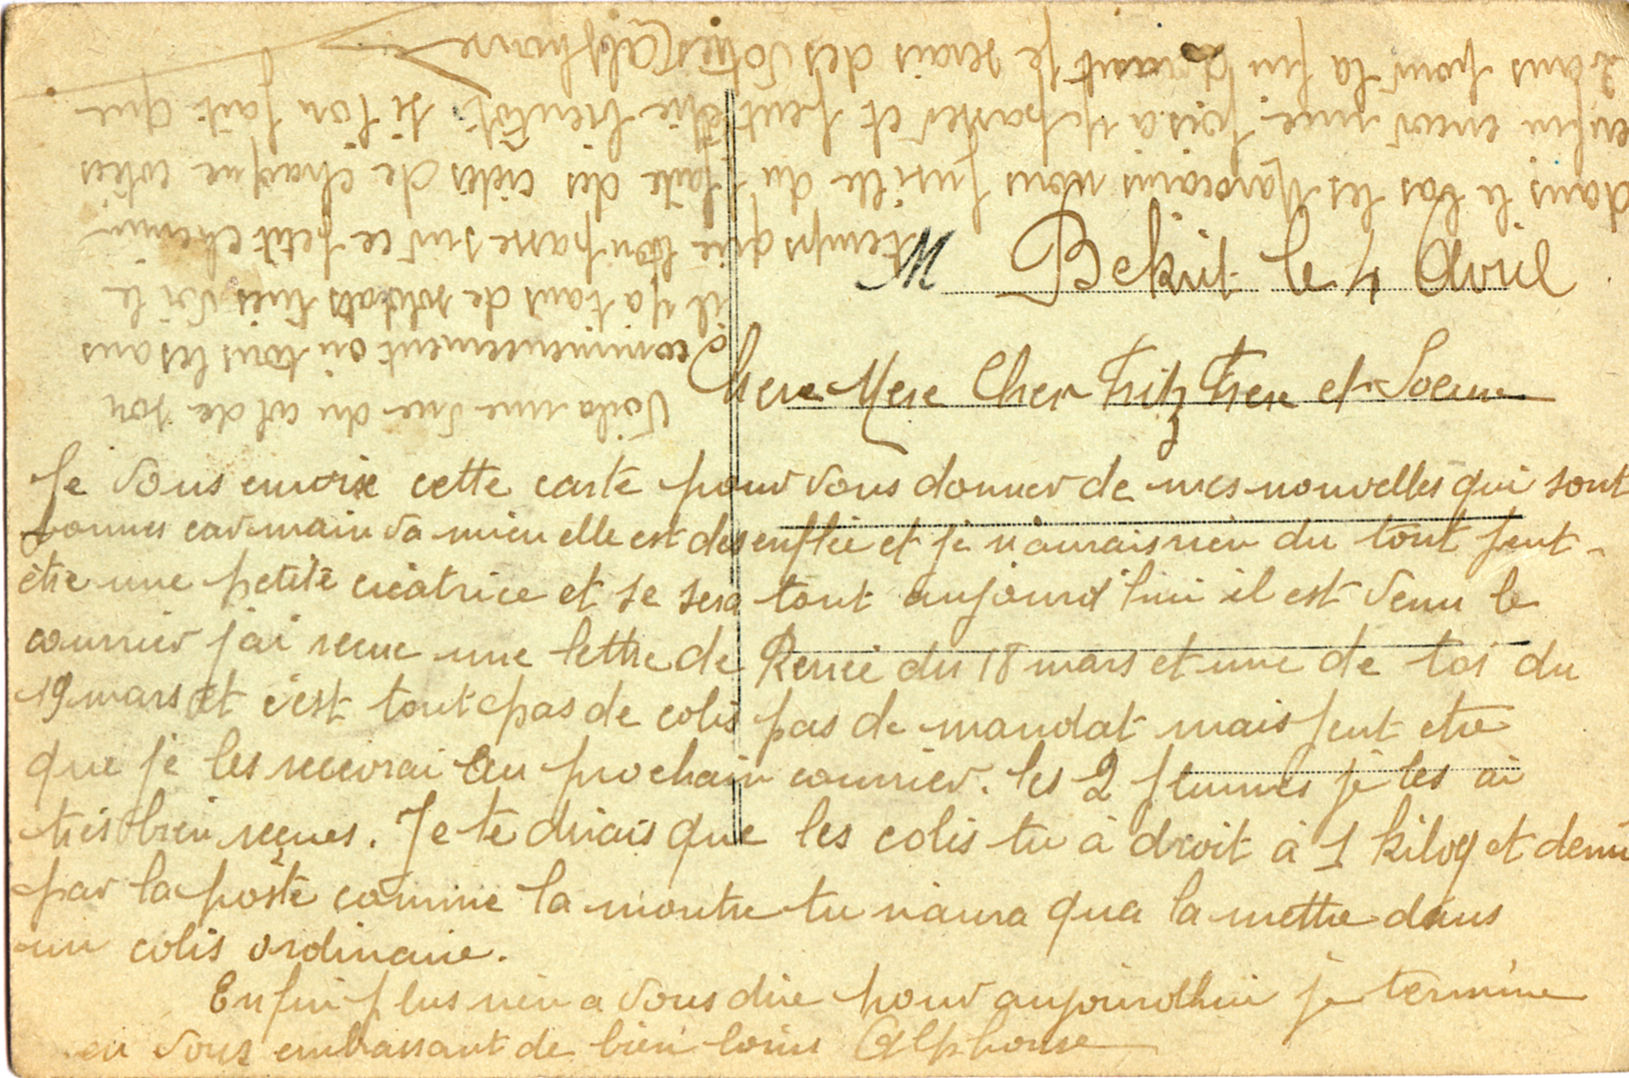 M Bekrit le 4 Avril
Chere Mere Cher Fritz Frere et Soeur
Je vous envoie cette carte pour vous donner de mes nouvelles qui sont
bonnes car main va mieu elle est desenflée et je n'aurais rien du tout peut-
être une petite cicatrice et se sera tout aujourd'hui il est venu le
courrier j'ai reçue une lettre de Renée du 18 mars et une de toi du
19 mars et c'est tout pas de colis pas de mandat mais peut etre
que je les recevrai au prochain courrier. les 2 plumes je les ai
très bien reçues. Je te dirais que les colis tu à droit à 1 kilog et demi
par la poste comme la montre tu n'aura qua la mettre dans
un colis ordinaire.
Enfin plus rien a vous dire pour aujourd'hui je termine
en vous embrassant de bien loins Alphonse
Voila une vue du col de son
commencement ou tous les ans
il y a tans de soldats tués voi le
temps que l'on passe sur ce petit chemin
dans le bas les Marocains nous fusille du faite des de chaque cotées
enfin encor une fois a y passer et peut etre bientôt si l'on fait que
2 ans pour la fin je serais des votres Alphonse